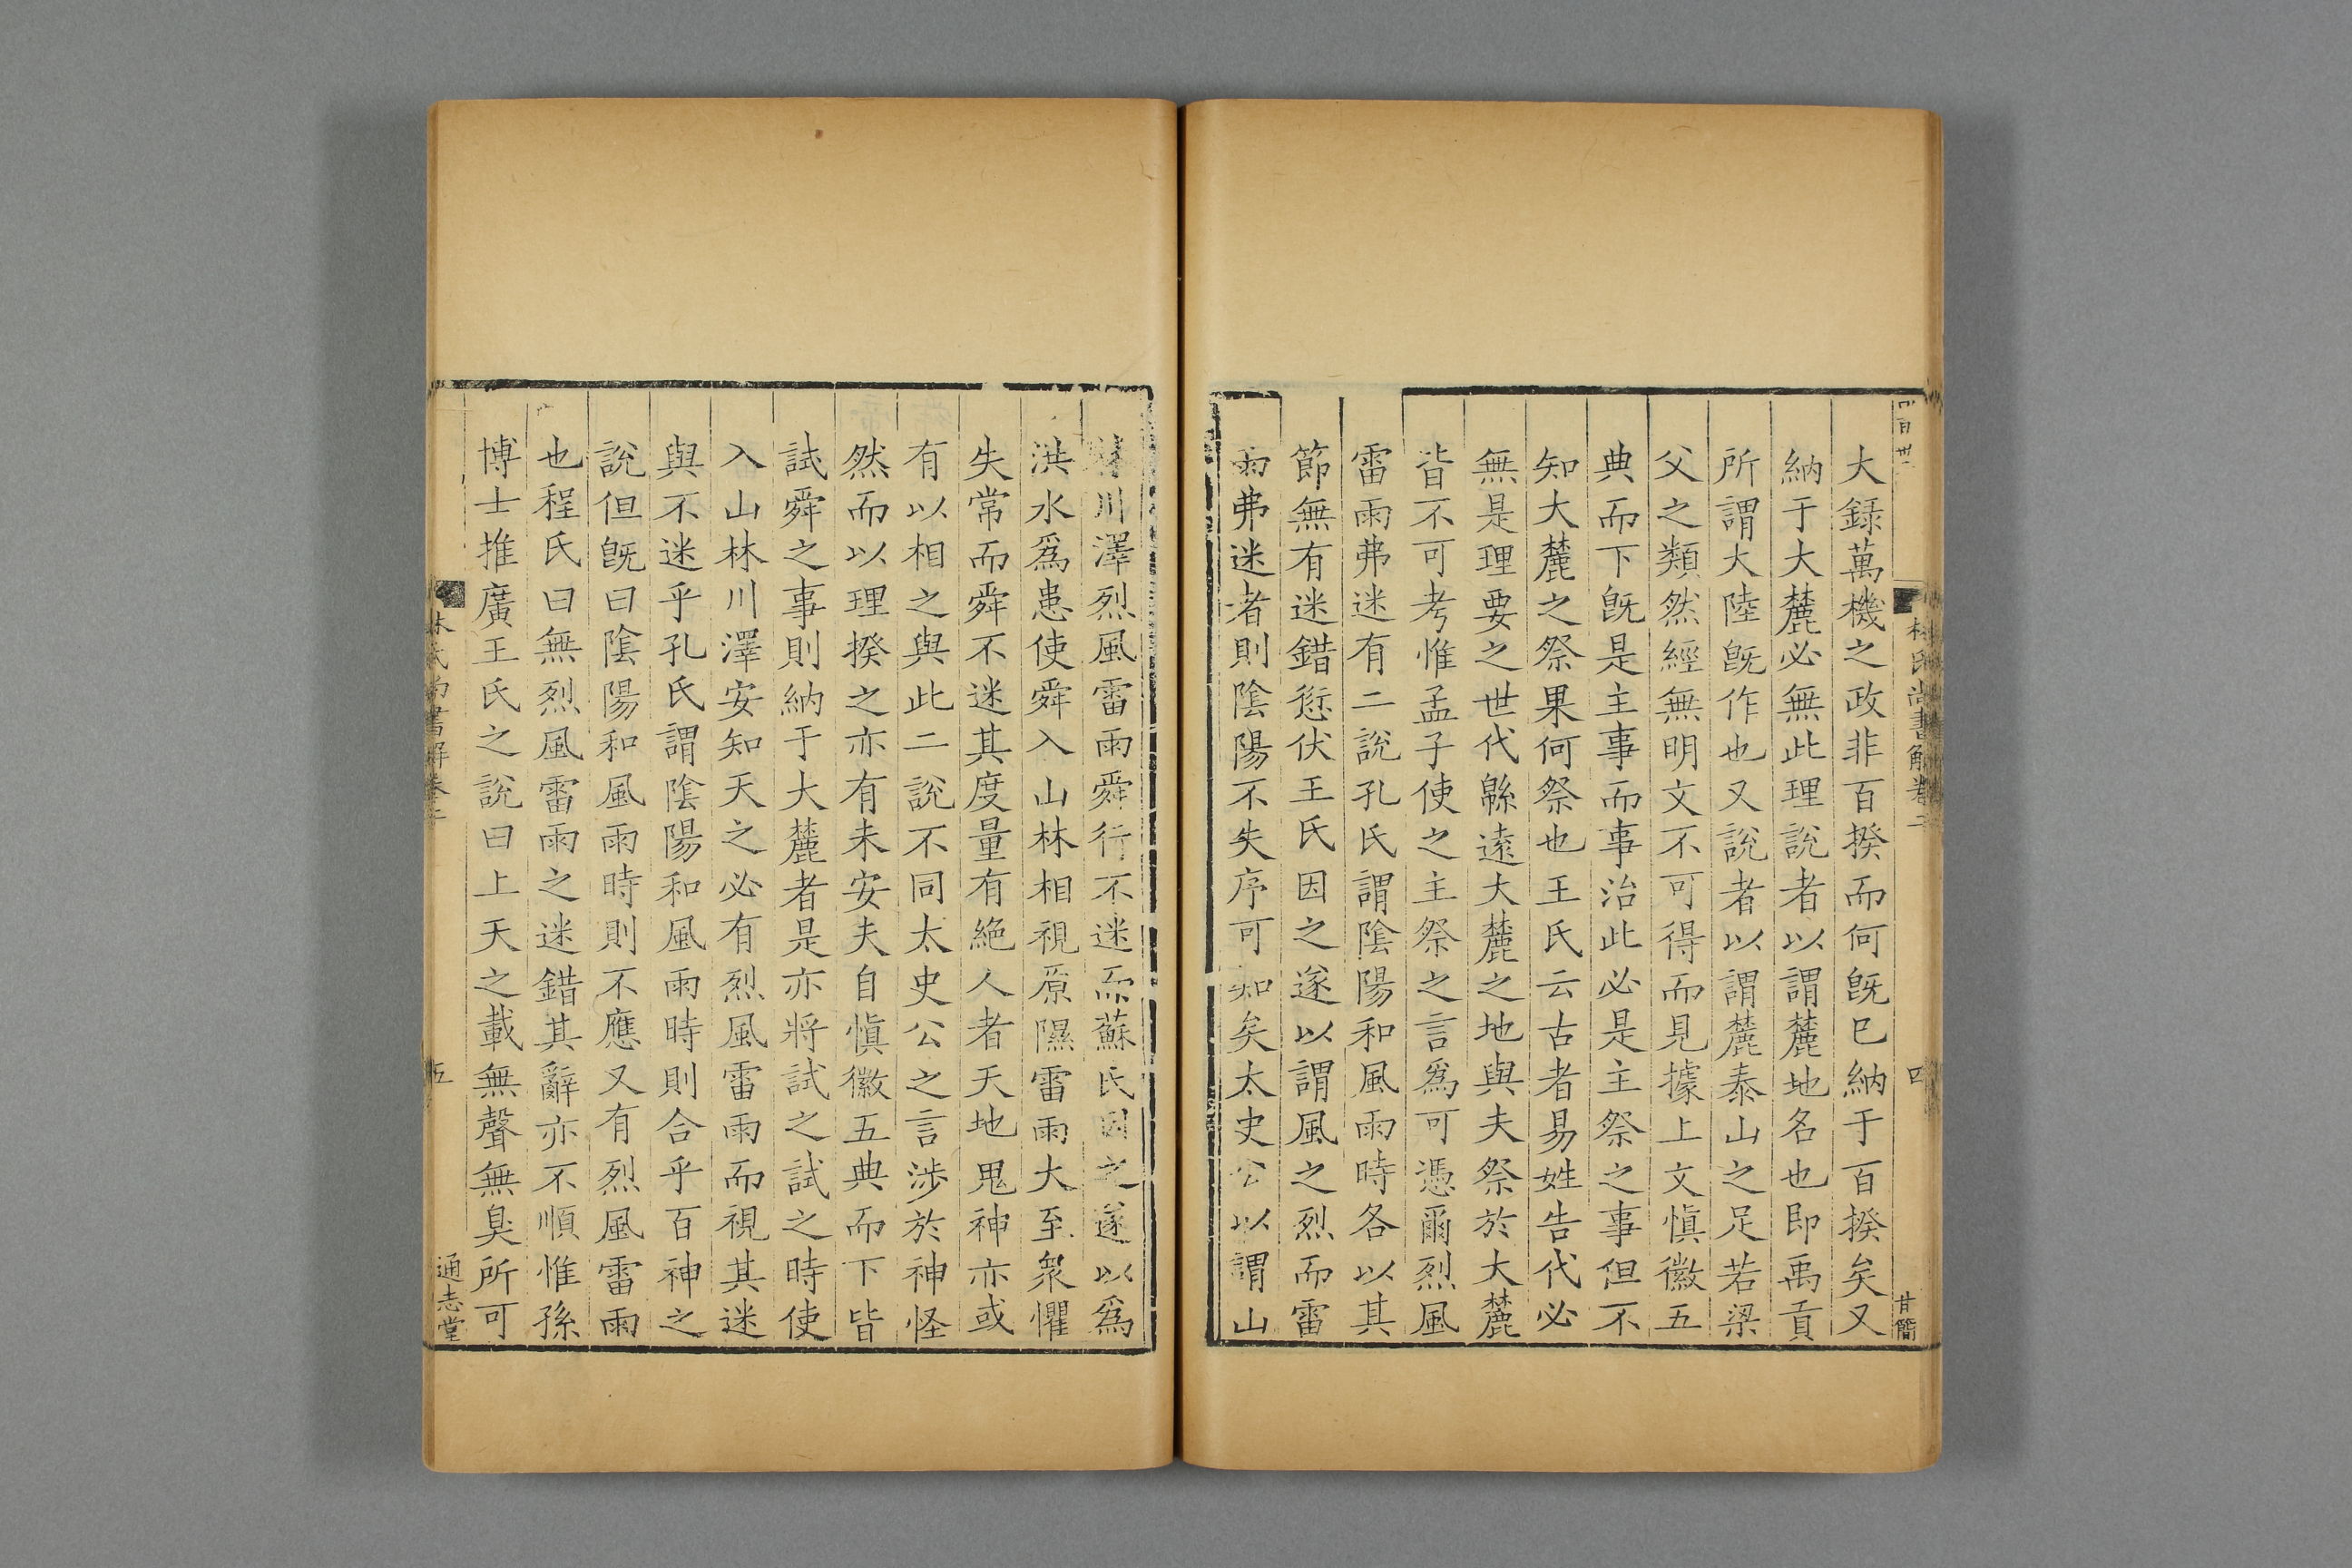 大録萬機之政非百揆而何旣已納于百揆矣又
納于大麓必無此理說者以謂麓地名也即禹貢
所謂大陸旣作也又說者以謂麓泰山之足若梁
父之類然經無明文不可得而見據上文愼徽五
典而下旣是主事而事治此必是主祭之事但不
知大麓之祭果何祭也王氏云古者易姓告代必
無是理要之世代緜遠大麓之地與夫祭於大麓
皆不可考惟孟子使之主祭之言爲可憑爾烈風
雷雨弗迷有二說孔氏謂隂陽和風雨時各以其
節無有迷錯愆伏王氏因之遂以謂風之烈而雷
雨弗迷者則隂陽不失序可知矣太史公以謂山
林川澤烈風雷雨舜行不迷而蘇氏因之遂以爲
洪水爲患使舜入山林相視原隰雷雨大至衆懼
失常而舜不迷其度量有絶人者天地鬼神亦或
有以相之與此二說不同太史公之言涉於神怪
然而以理揆之亦有未安夫自愼徽五典而下皆
試舜之事則納于大麓者是亦將試之試之時使
入山林川澤安知天之必有烈風雷雨而視其迷
與不迷乎孔氏謂隂陽和風雨時則合乎百神之
說但旣曰隂陽和風雨時則不應又有烈風雷雨
也程氏曰無烈風雷雨之迷錯其辭亦不順惟孫
博士推廣王氏之說曰上天之載無聲無臭所可
林氏尚書解卷二
四
甘簡
林氏尚書解卷二
五
通志堂